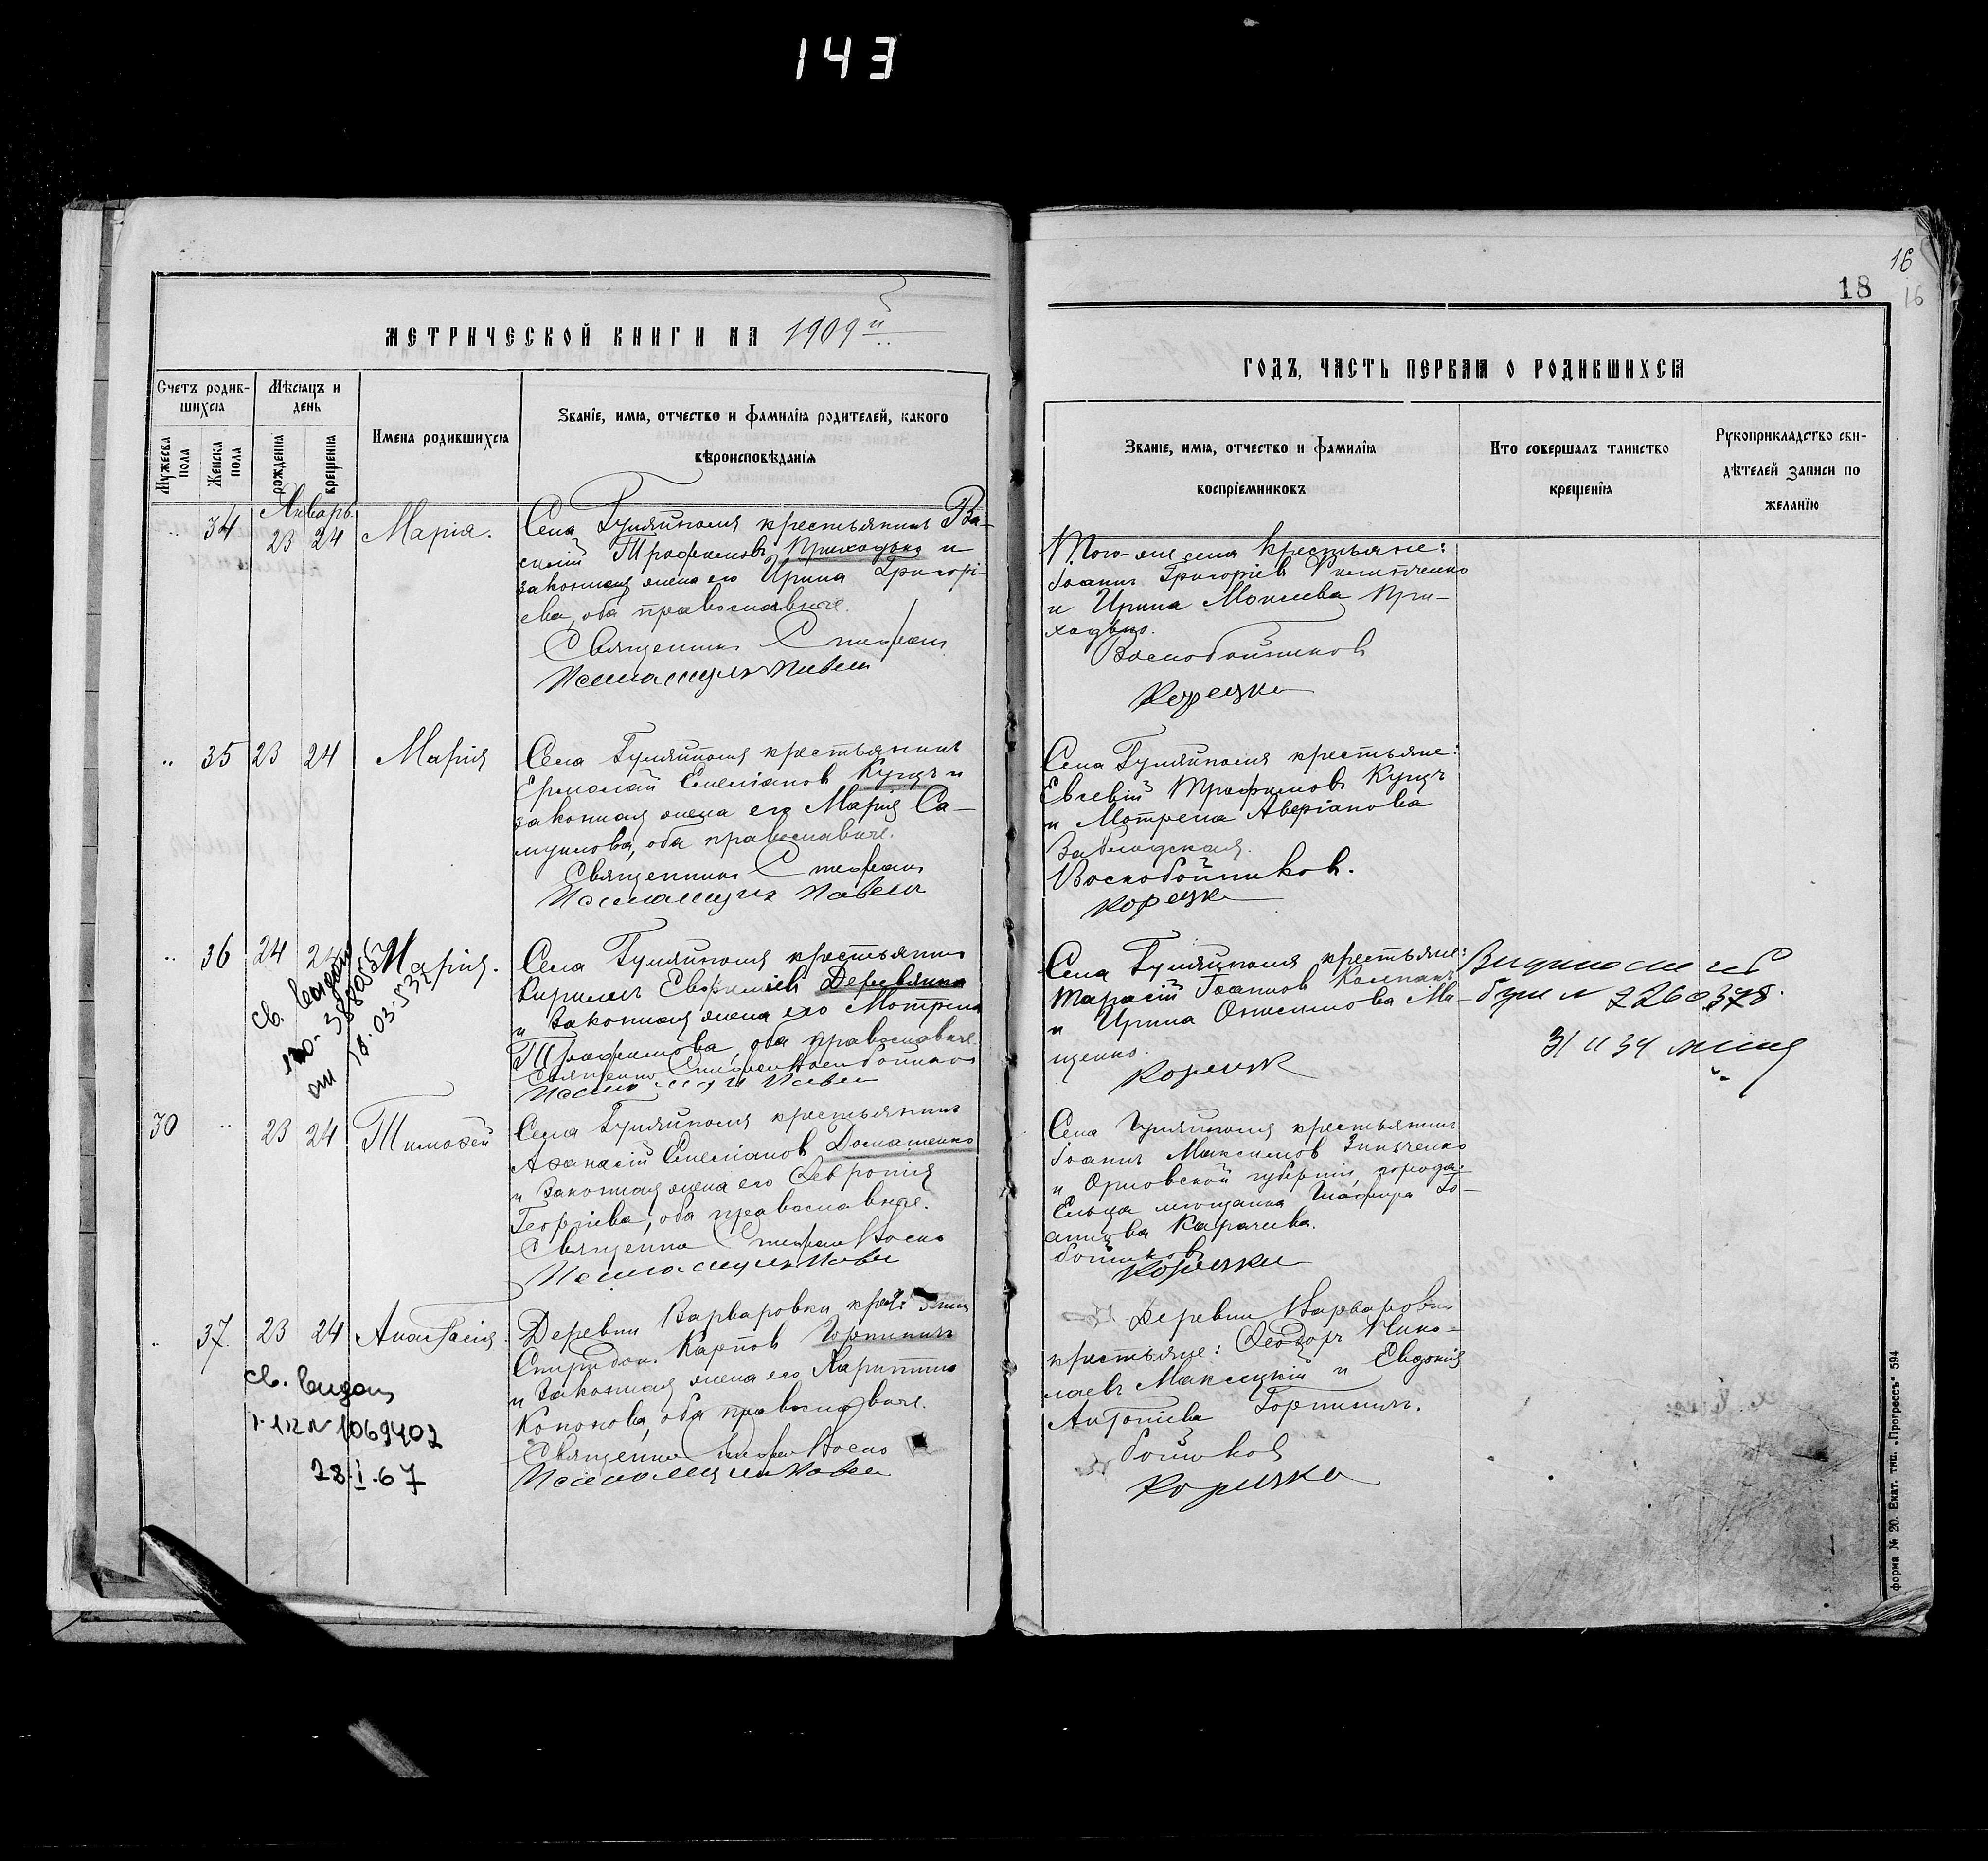 143
16
18
16
МЕТРИЧЕСКОЙ КНИГИ НА 1909 й
Счетъ родив-
шихся
Мѣсяцъ и
день
Мужеска
пола
Женска
пола
рожденія
крещенія
Имена родившихся
Званіе, имя, отчество и фамилія родителей, какого
вѣроисповѣданія
Январь
34 23 24 Марія.
Села Гуляйполя крестьянинъ Ва-
силій Трофимовъ Приходько и
законная жена его Ирина Григорі-
ева, оба православные.
Священникъ Стефанъ
Псаломщикъ Павелъ
35 23 24 Марія
Села Гуляйполя крестьянинъ
Ермолай Емеліановъ Куцъ и
законная жена его Марія Са-
муилова, оба православные.
Священникъ Стефанъ
Псаломщикъ Павелъ
36 24 24 Марія.
св. выдано
388055
от 18.03.53
Села Гуляйполя крестьянинъ
Кириллъ Евфиміевъ Деревянко
и законная жена его Мотрона
Трофимова, оба православные.
Священникъ Стефанъ Воскобойниковъ
Псаломщикъ Павелъ
30 23 24 Тимофей
Села Гуляйполя крестьянинъ
Афанасій Емеліановъ Домашенко
и законная жена его Февронія
Георгіева, оба православные.
Священникъ Стефанъ Воско
Псаломщикъ Павелъ
37. 23 24 Анастасія.
св. выдано
№ 1069402
28.I.67
Деревни Варваровки крестьянинъ
Спиридонъ Карповъ Горпиничъ
и законная жена его Харитина
Кононова, оба православные.
Священникъ Стефанъ Воско
Псаломщикъ Павелъ
ГОДЪ, ЧАСТЬ ПЕРВАЯ О РОДИВШИХСЯ
Званіе, имя, отчество и фамилія
воспріемниковъ
Кто совершалъ таинство
крещенія
Рукоприкладство сви-
дѣтелей записи по
желанію
Того-же села крестьяне:
Іоаннъ Григоріевъ
и Ирина Моисеева При-
ходько.
Воскобойниковъ
Корецкій
Села Гуляйполя крестьяне:
Евсевій Трофимовъ Куцъ
и Мотрона Аверіанова
Заблодская.
Воскобойниковъ.
Корецкій
Села Гуляйполя крестьяне:
Тарасій Іоанновъ Колпакъ
и Ирина Онисимова Ми-
щенко.
Корецкій
31 II 34
Села Гуляйполя крестьянинъ
Іоаннъ Максимовъ Зинченко
и Орловской губерніи, города
Ельца мѣщанка Глафира Іо-
аннова Карачева.
бойниковъ
Корецкій
Деревни Варваровки
крестьяне: Феодоръ Нико-
лаевъ Максицкій и Евдокія
Антоніева Горпиничъ.
бойниковъ
Корецкій
форма № 20. Екат. тип. „Прогрессъ“ 594